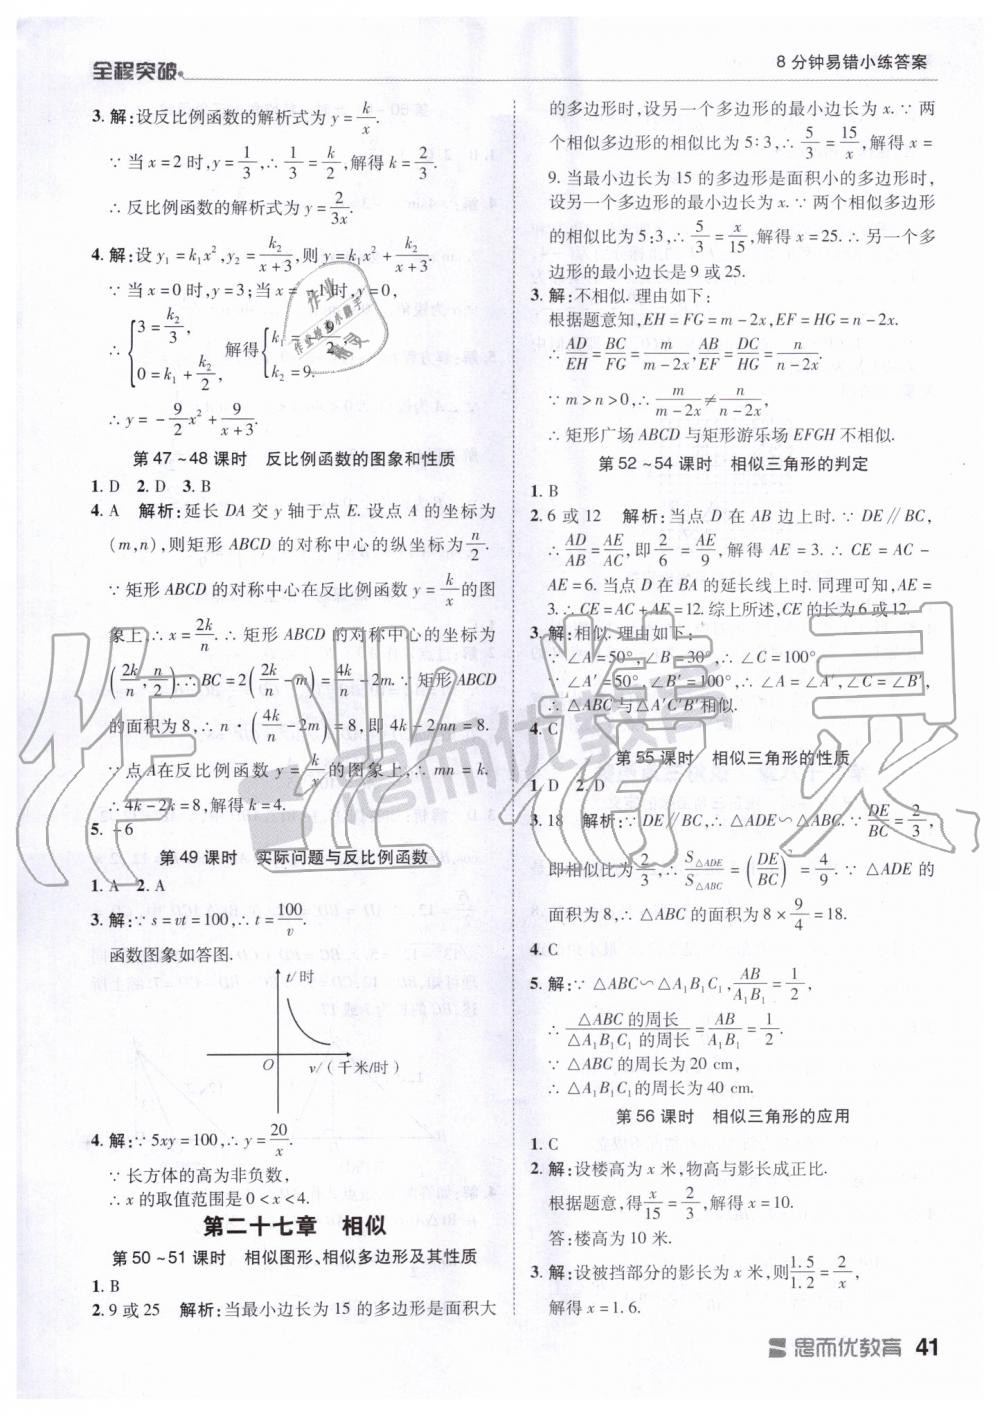 全程突破
8分钟易错小练答案
3. 解:设反比例函数的解析式为 y = k/x.
∵ 当 x = 2 时, y = 1/3, ∴ 1/3 = k/2, 解得 k = 2/3.
∴ 反比例函数的解析式为 y = 2/(3x).
4. 解:设 y₁ = k₁x², y₂ = k₂/(x+3), 则 y = k₁x² + k₂/(x+3).
∵ 当 x = 0 时, y = 3; 当 x = -1 时, y = 0,
∴ { 3 = k₂/3, 0 = k₁ + k₂/2, 解得 { k₁ = -9/2, k₂ = 9.
∴ y = -9/2 x² + 9/(x+3).
第 47 ~ 48 课时 反比例函数的图象和性质
1. D 2. D 3. B
4. A 解析:延长 DA 交 y 轴于点 E. 设点 A 的坐标为
(m,n), 则矩形 ABCD 的对称中心的纵坐标为 n/2.
∵ 矩形 ABCD 的对称中心在反比例函数 y = k/x 的图
象上, ∴ x = 2k/n. ∴ 矩形 ABCD 的对称中心的坐标为
(2k/n, n/2). ∴ BC = 2(2k/n - m) = 4k/n - 2m. ∵ 矩形 ABCD
的面积为 8, ∴ n·(4k/n - 2m) = 8, 即 4k - 2mn = 8.
∵ 点 A 在反比例函数 y = k/x 的图象上, ∴ mn = k.
∴ 4k - 2k = 8, 解得 k = 4.
5. -6
第 49 课时 实际问题与反比例函数
1. A 2. A
3. 解:∵ s = vt = 100, ∴ t = 100/v.
函数图象如答图.
t/时
O
v/(千米/时)
4. 解:∵ 5xy = 100, ∴ y = 20/x.
∵ 长方体的高为非负数,
∴ x 的取值范围是 0 < x < 4.
第二十七章 相似
第 50 ~ 51 课时 相似图形、相似多边形及其性质
1. B
2. 9 或 25 解析:当最小边长为 15 的多边形是面积大
的多边形时, 设另一个多边形的最小边长为 x. ∵ 两
个相似多边形的相似比为 5:3, ∴ 5/3 = 15/x, 解得 x =
9. 当最小边长为 15 的多边形是面积小的多边形时,
设另一个多边形的最小边长为 x. ∵ 两个相似多边形
的相似比为 5:3, ∴ 5/3 = x/15, 解得 x = 25. ∴ 另一个多
边形的最小边长是 9 或 25.
3. 解:不相似. 理由如下:
根据题意知, EH = FG = m - 2x, EF = HG = n - 2x.
∴ AD/EH = BC/FG = m/(m-2x), AB/EF = DC/HG = n/(n-2x).
∵ m > n > 0, ∴ m/(m-2x) ≠ n/(n-2x),
∴ 矩形广场 ABCD 与矩形游乐场 EFGH 不相似.
第 52 ~ 54 课时 相似三角形的判定
1. B
2. 6 或 12 解析:当点 D 在 AB 边上时. ∵ DE∥BC,
∴ AD/AB = AE/AC, 即 2/6 = AE/9, 解得 AE = 3. ∴ CE = AC -
AE = 6. 当点 D 在 BA 的延长线上时. 同理可知, AE =
3. ∴ CE = AC + AE = 12. 综上所述, CE 的长为 6 或 12.
3. 解:相似. 理由如下:
∵ ∠A = 50°, ∠B = 30°, ∴ ∠C = 100°.
∵ ∠A′ = 50°, ∠B′ = 100°, ∴ ∠A = ∠A′, ∠C = ∠B′,
∴ △ABC 与 △A′C′B′ 相似.
4. C
第 55 课时 相似三角形的性质
1. D 2. D
3. 18 解析:∵ DE∥BC, ∴ △ADE∽△ABC. ∵ DE/BC = 2/3,
即相似比为 2/3, ∴ S△ADE/S△ABC = (DE/BC)² = 4/9. ∵ △ADE 的
面积为 8, ∴ △ABC 的面积为 8 × 9/4 = 18.
4. C
5. 解:∵ △ABC∽△A₁B₁C₁, AB/A₁B₁ = 1/2,
∴ △ABC 的周长/△A₁B₁C₁ 的周长 = AB/A₁B₁ = 1/2.
∵ △ABC 的周长为 20 cm,
∴ △A₁B₁C₁ 的周长为 40 cm.
第 56 课时 相似三角形的应用
1. C
2. 解:设楼高为 x 米, 物高与影长成正比.
根据题意, 得 x/15 = 2/3, 解得 x = 10.
答:楼高为 10 米.
3. 解:设被挡部分的影长为 x 米, 则 1.5/1.2 = 2/x,
解得 x = 1.6.
思而优教育 41
作业精灵
思而优教育